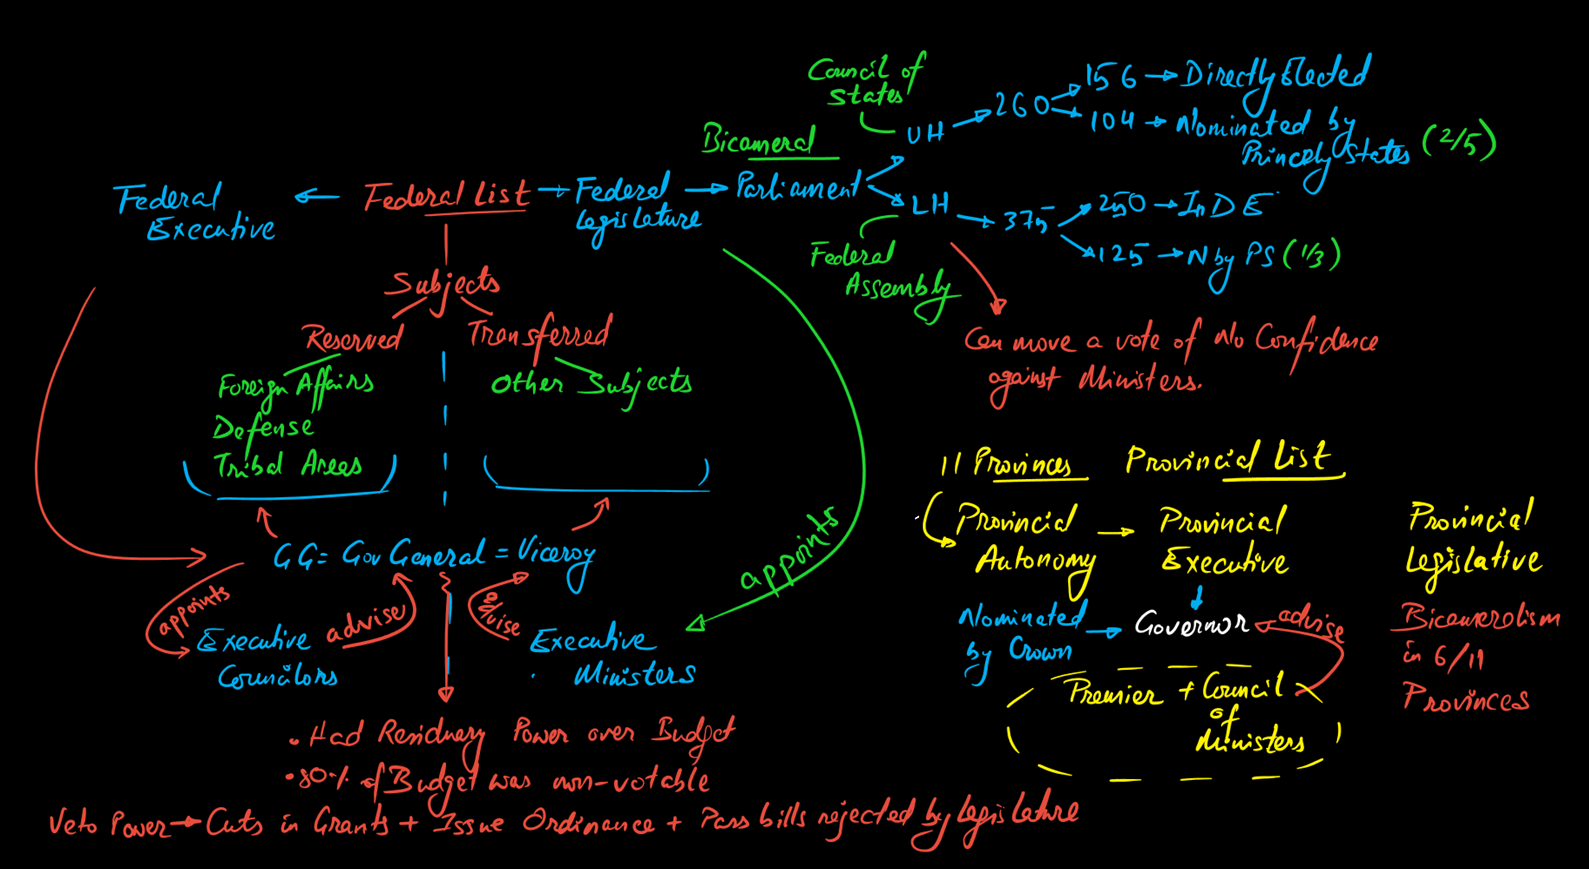 Council of
States
UH
260
156 → Directly Elected
104 → Nominated by
Princely States (2/5)
Bicameral
Federal
Executive
← Federal List →
Federal
Legislature
→ Parliament
LH
375
250 → InDE
125 → N by PS (1/3)
Federal
Assembly
Can move a vote of No Confidence
against Ministers.
Subjects
Reserved
Transferred
Foreign Affairs
Defense
Tribal Areas
Other Subjects
GG = Gov General = Viceroy
appoints
advise
advise
appoints
Executive
Councilors
Executive
Ministers
• Had Residuary Power over Budget
• 80% of Budget was non-votable
Veto Power → Cuts in Grants + Issue Ordinance + Pass bills rejected by legislature
11 Provinces
Provincial List
Provincial
Autonomy
→ Provincial
Executive
Provincial
Legislative
Nominated
by Crown
→ Governor
advise
Premier + Council
of
Ministers
Bicamerolism
in 6/11
Provinces